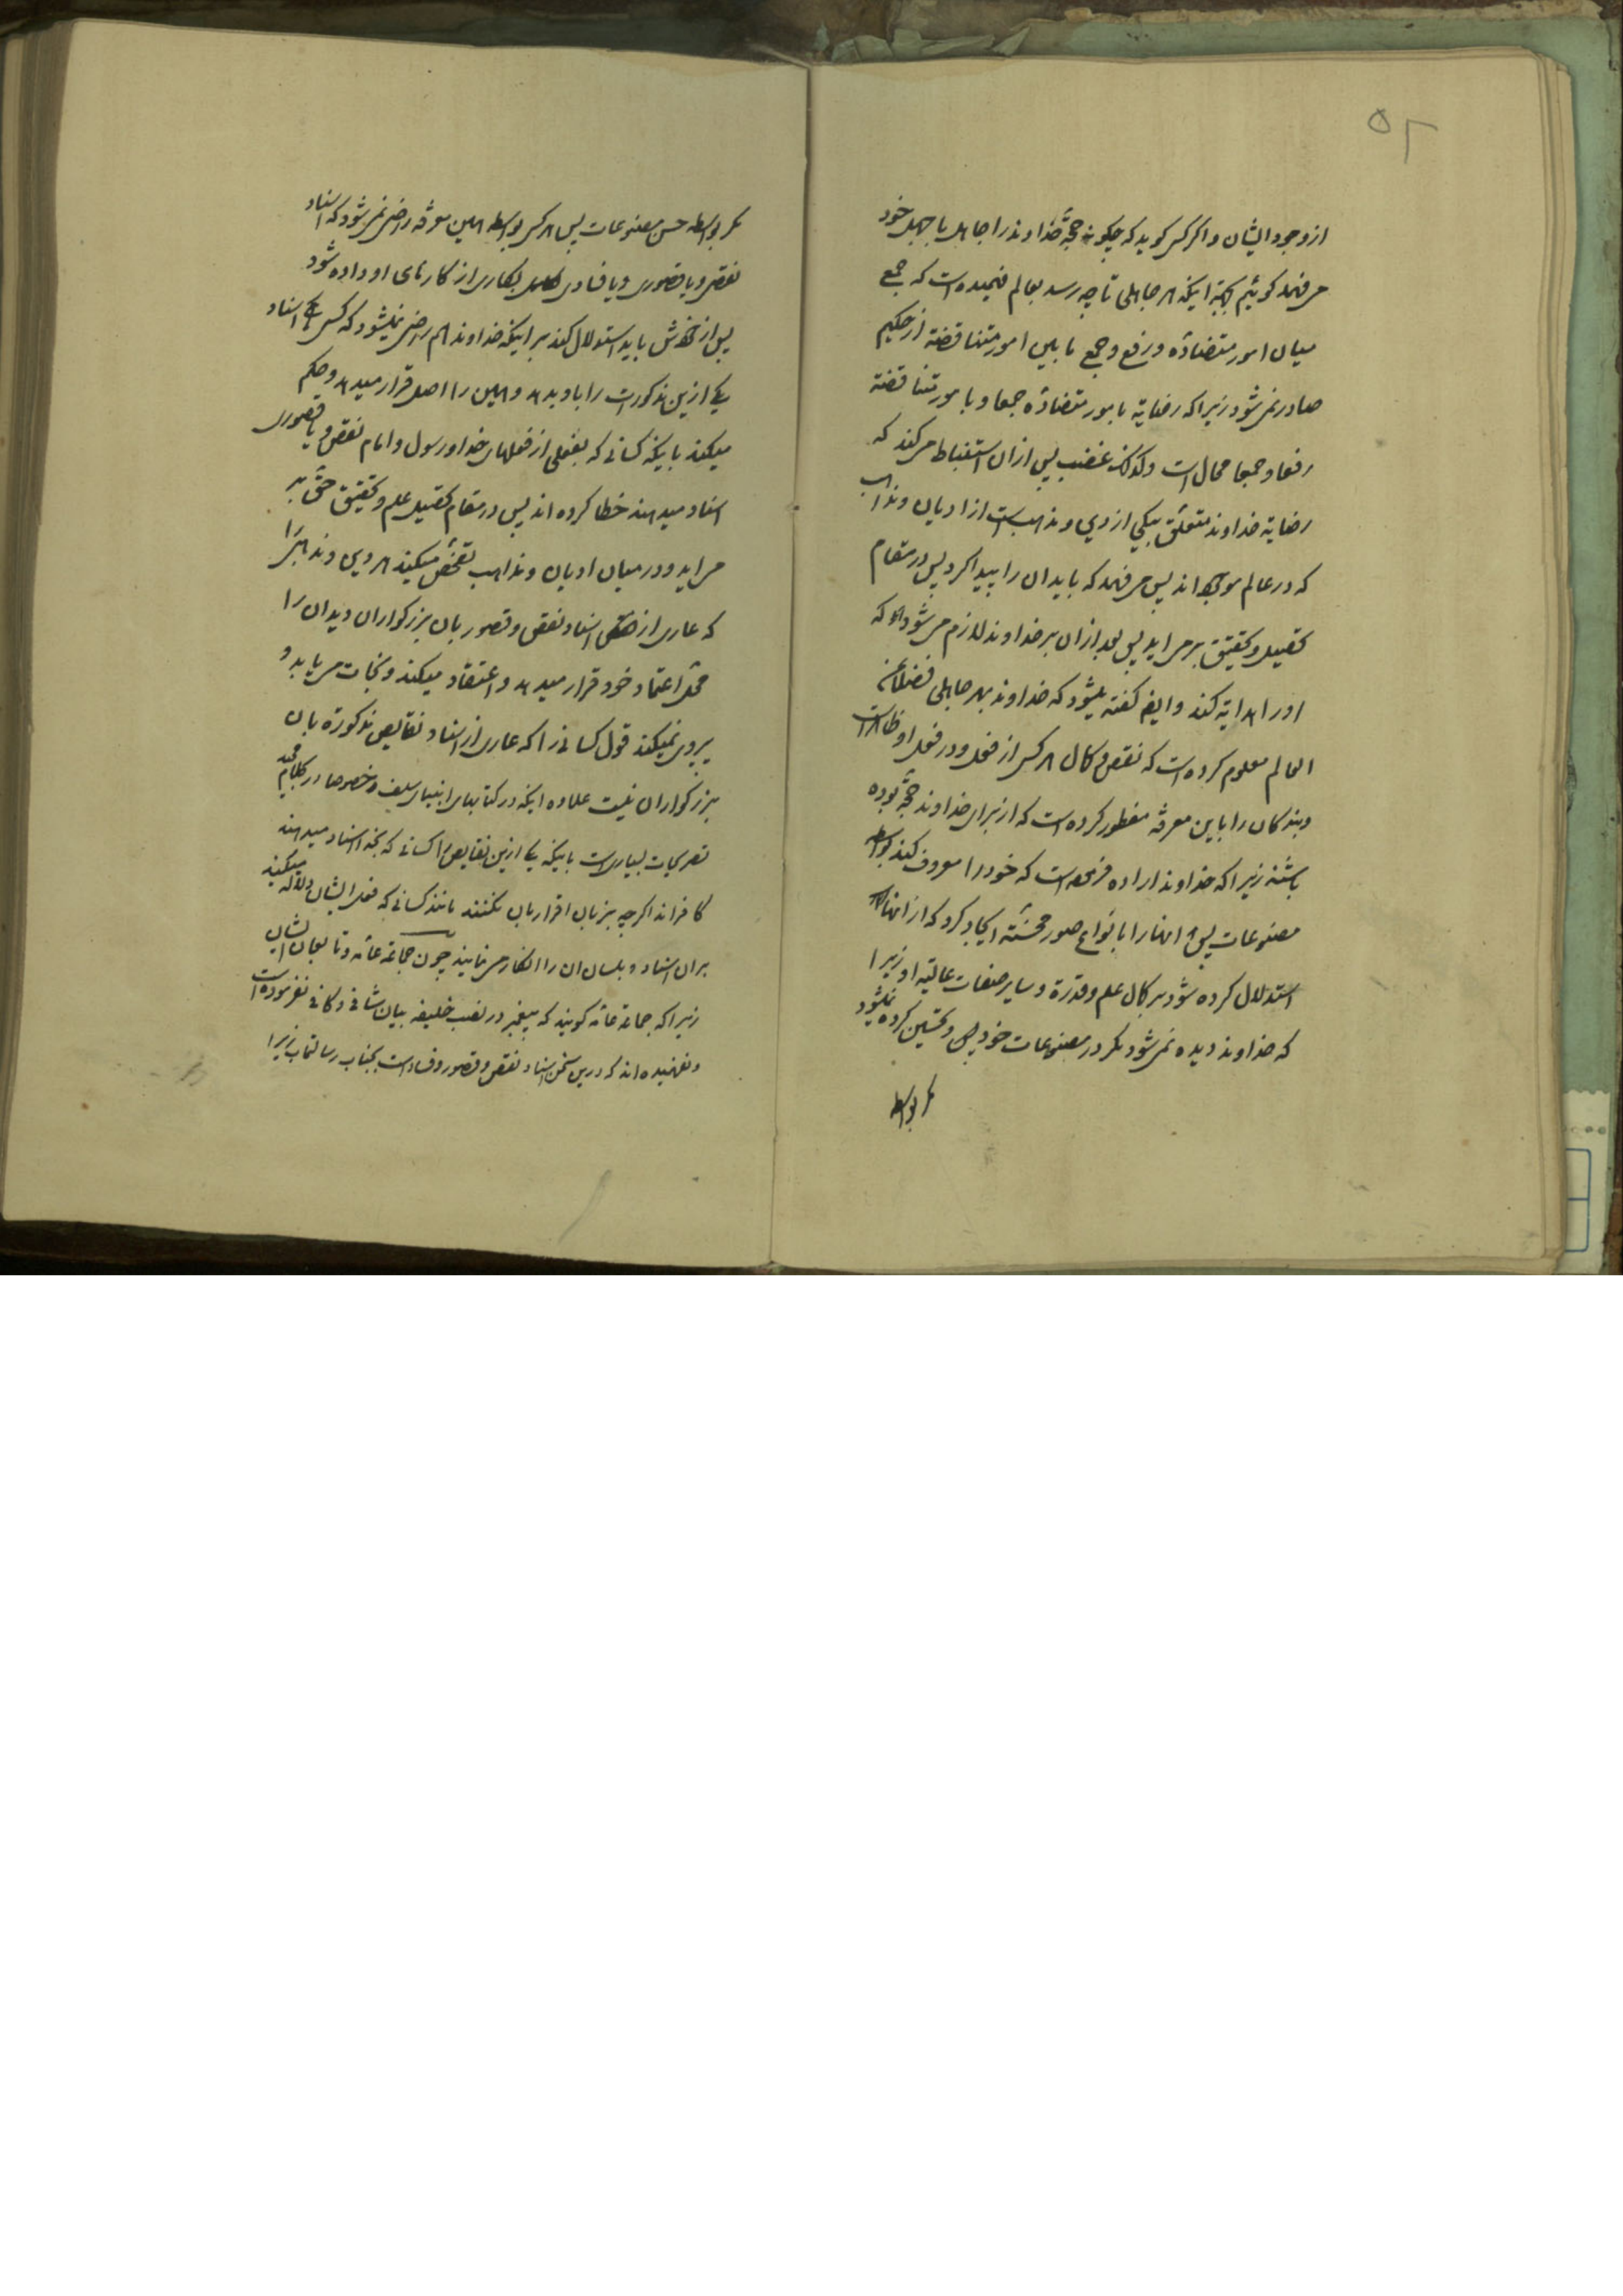 ۵۲
از وجود ایشان و اگر کسی گوید که چگونه حجّة خداوند را جاهل با جهل خود
می فهمد گوئیم بجهة اینکه هر جاهلی تا چه رسد بعالم فهمیده است که جمع
میان امور متضادّه و رفع و جمع مابین امور متناقضة از حکیم
صادر نمی شود زیرا که رضایة بامور متضادّه جمعا و بامور متناقضة
رفعا و جمعا محال است و کذلک غضب پس از ان استنباط می کند که
رضایة خداوند متعلّق بیکی از دین و مذهب است از ادیان و مذاهب
که در عالم موجود اند پس می فهمد که باید ان را پیدا کرد پس در مقام
تحصیل و تحقیق برمی اید پس بعد از ان بر خداوند لازم می شود که
او را هدایة کند و ایضا گفته میشود که خداوند بهر جاهلی فضلا عن
العالم معلوم کرده است که نقص و کمال هر کس از فعل و در فعل او ظاهر است
و بندگان را باین معرفة مفطور کرده است که از برای خداوند حجّة بوده
باشد زیرا که خداوند اراده فرموده است که خود را معروف کند بواسطه
مصنوعات پس انها را بانواع صور محسّنة ایجاد کرد که از انها
استدلال کرده شود بر کمال علم و قدرة و سایر صفات عالیه او زیرا
که خداوند دیده نمی شود مگر در مصنوعات خود و تحسین کرده نمیشود
مگر بواسطه
مگر بواسطه حسن مصنوعات پس هر کس بواسطه همین معرفة راضی نمی شود که اسناد
نقص و یا قصوری و یا فسادی بکاری از کارهای او داده شود
پس از خودش باید استدلال کند بر اینکه خداوند هم راضی نمیشود که کسی اسناد
یکی ازین مذکورات را باو بدهد و همین را اصل قرار میدهد و حکم
میکند باینکه کسانی که بفعلی از فعلهای خدا و رسول و امام نقص و یا قصوری
اسناد میدهند خطا کرده اند پس در مقام تحصیل علم و تحقیق حقّ بر
می اید و در میان ادیان و مذاهب تفحّص میکند هر دین و مذهبی را
که عاری از اسناد نقص و قصور بان بزرگواران دید ان را
محلّ اعتماد خود قرار میدهد و اعتقاد میکند و نجات می یابد و
پیروی نمیکند قول کسانی را که عاری از اسناد نقایص مذکوره بان
بزرگواران نیست علاوه اینکه در کتابهای انبیای سلف و خصوصا در کلام مجید
تصریحات بسیار است باینکه یکی ازین نقایص را کسانی که بخدا اسناد میدهند
کافراند اگر چه بزبان اقرار بان نکنند مانند کسانی که فعل ایشان دلالة میکند
بران اسناد و بلسان ان را انکار می نمایند چون جماعة عامّه و تابعان ایشان
زیرا که جماعة عامّه گویند که پیغمبر در نصب خلیفه بیان شافی و کافی نفرموده است
و نفهمیده اند که درین سخن اسناد نقص و قصور و فساد است بجناب رسالتماب زیرا